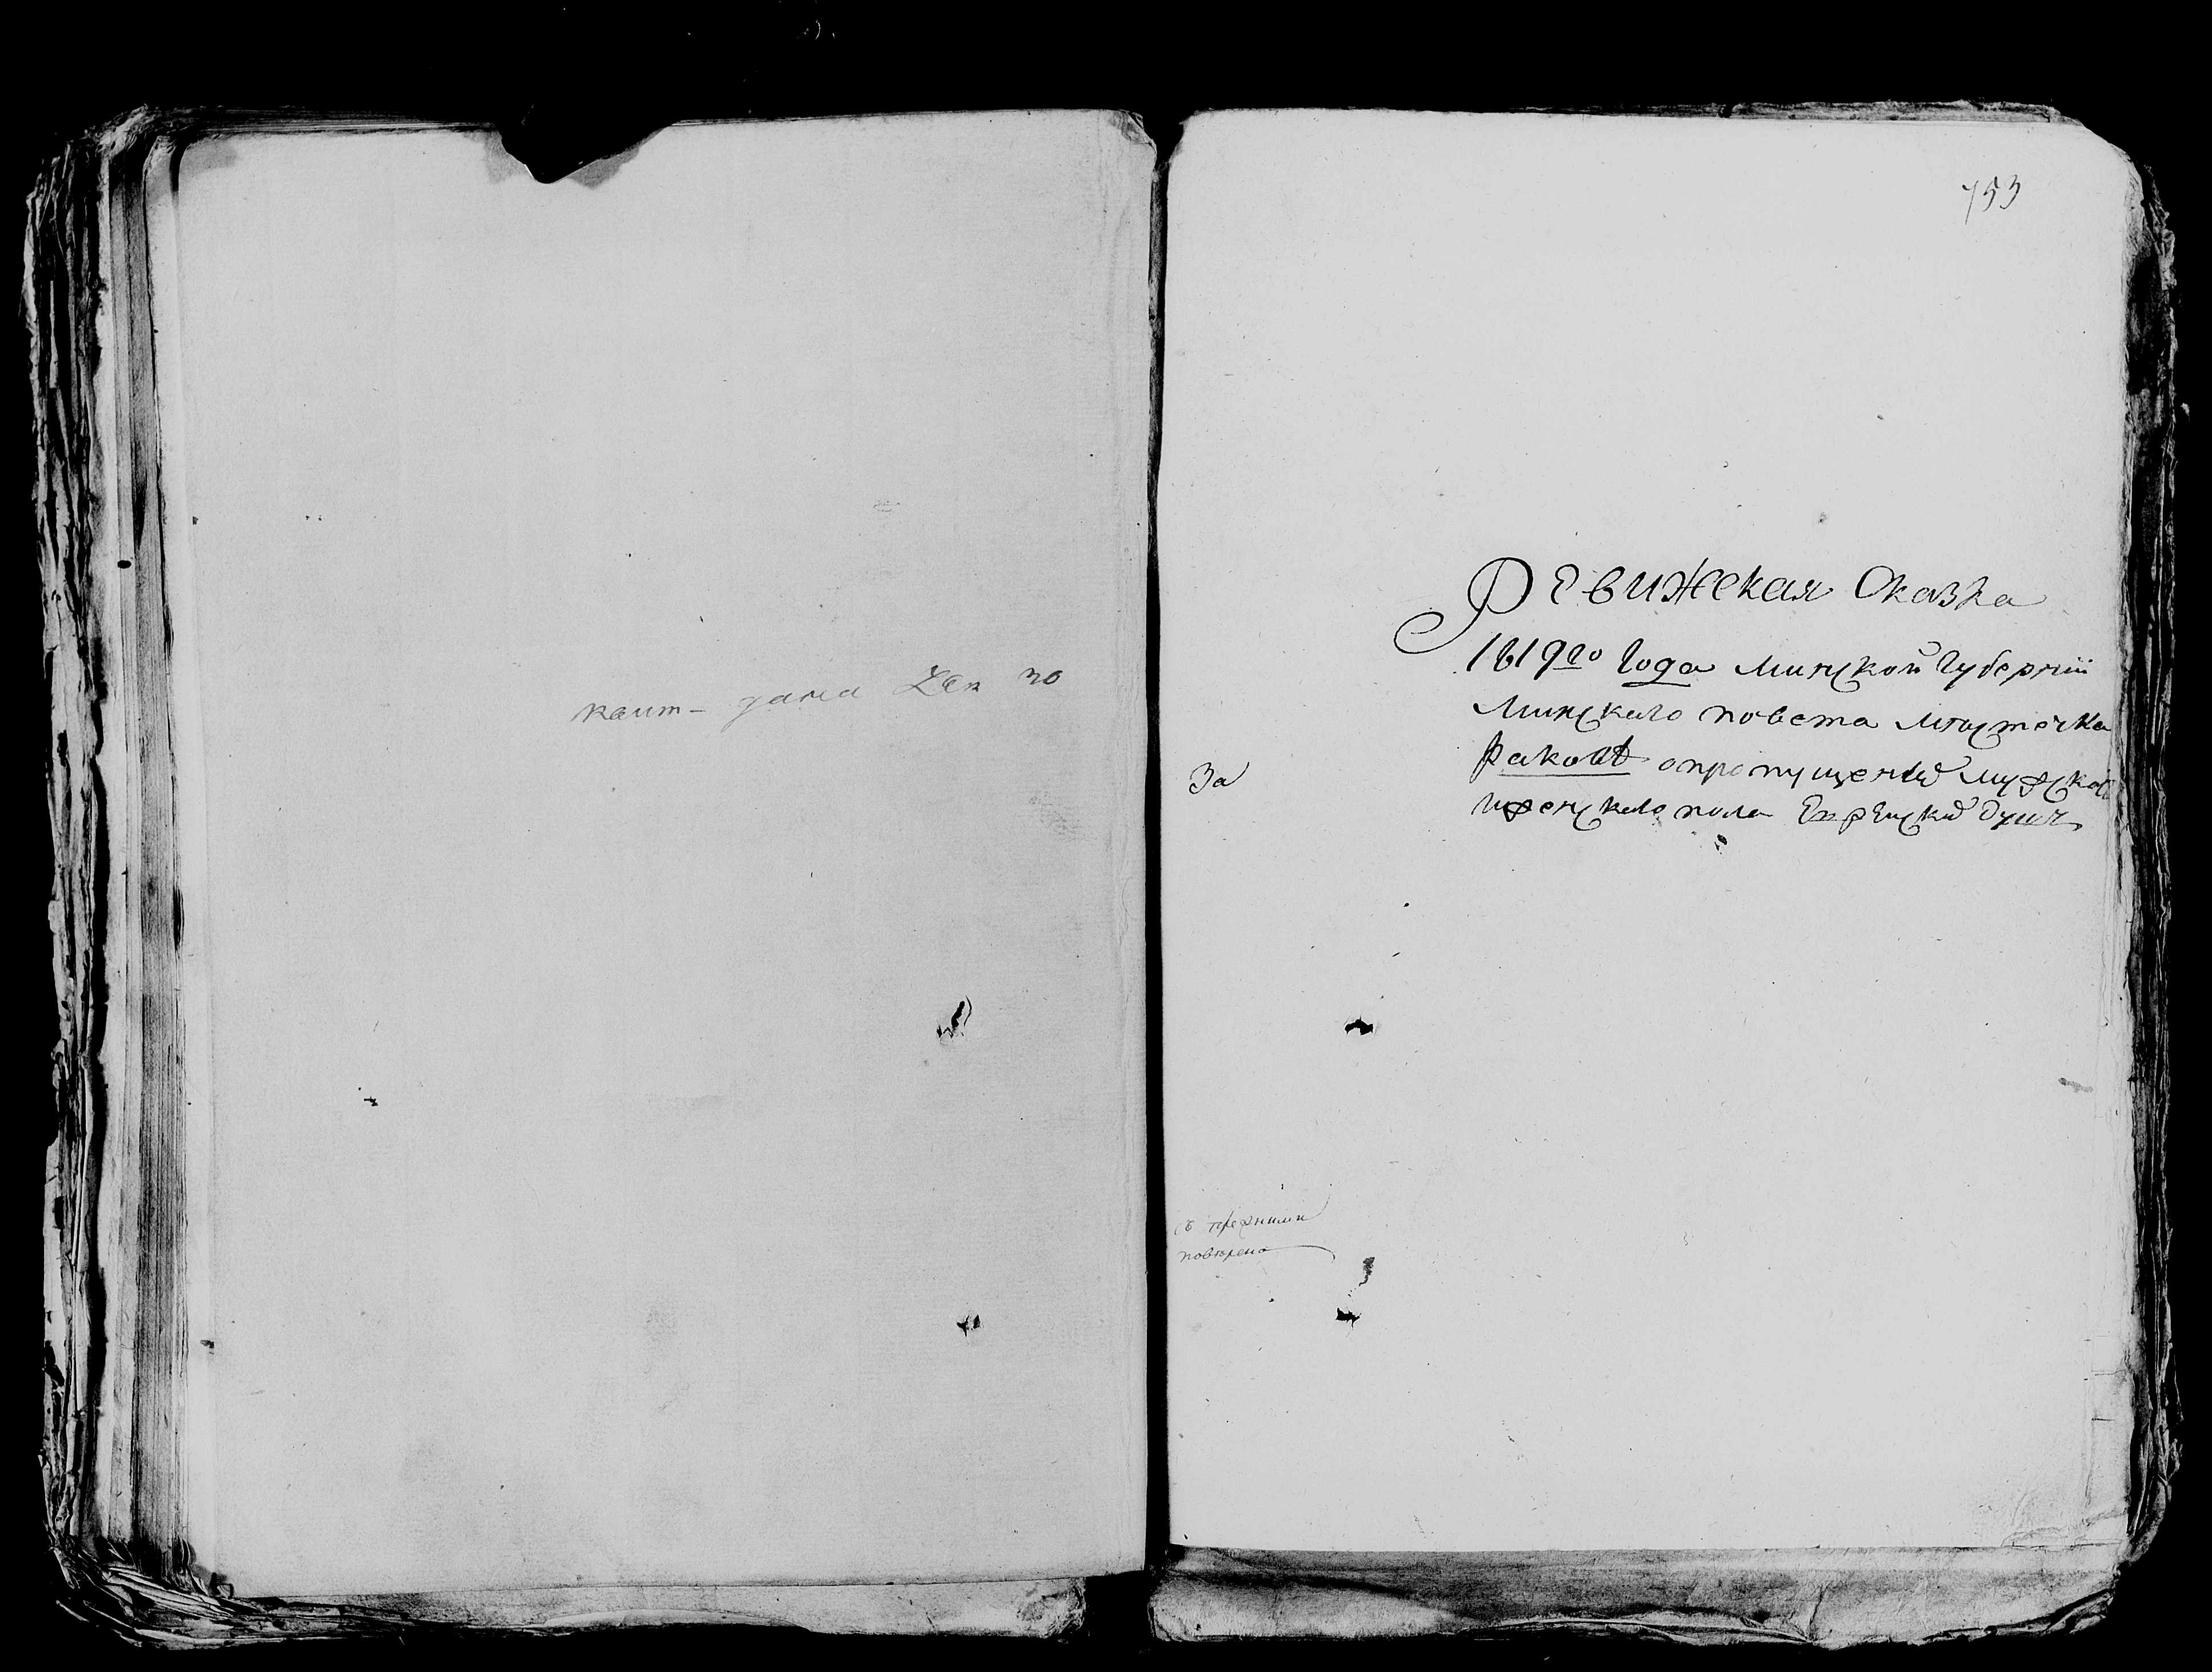 квит- дана Дек 20
753
Ревижская Сказка
1819го Года Минской Губернiи
Минскаго повета мѣстечка
Ракова о пропущенных мужско
и женскаго пола Еврейских душъ
За
съ прежними
поверено